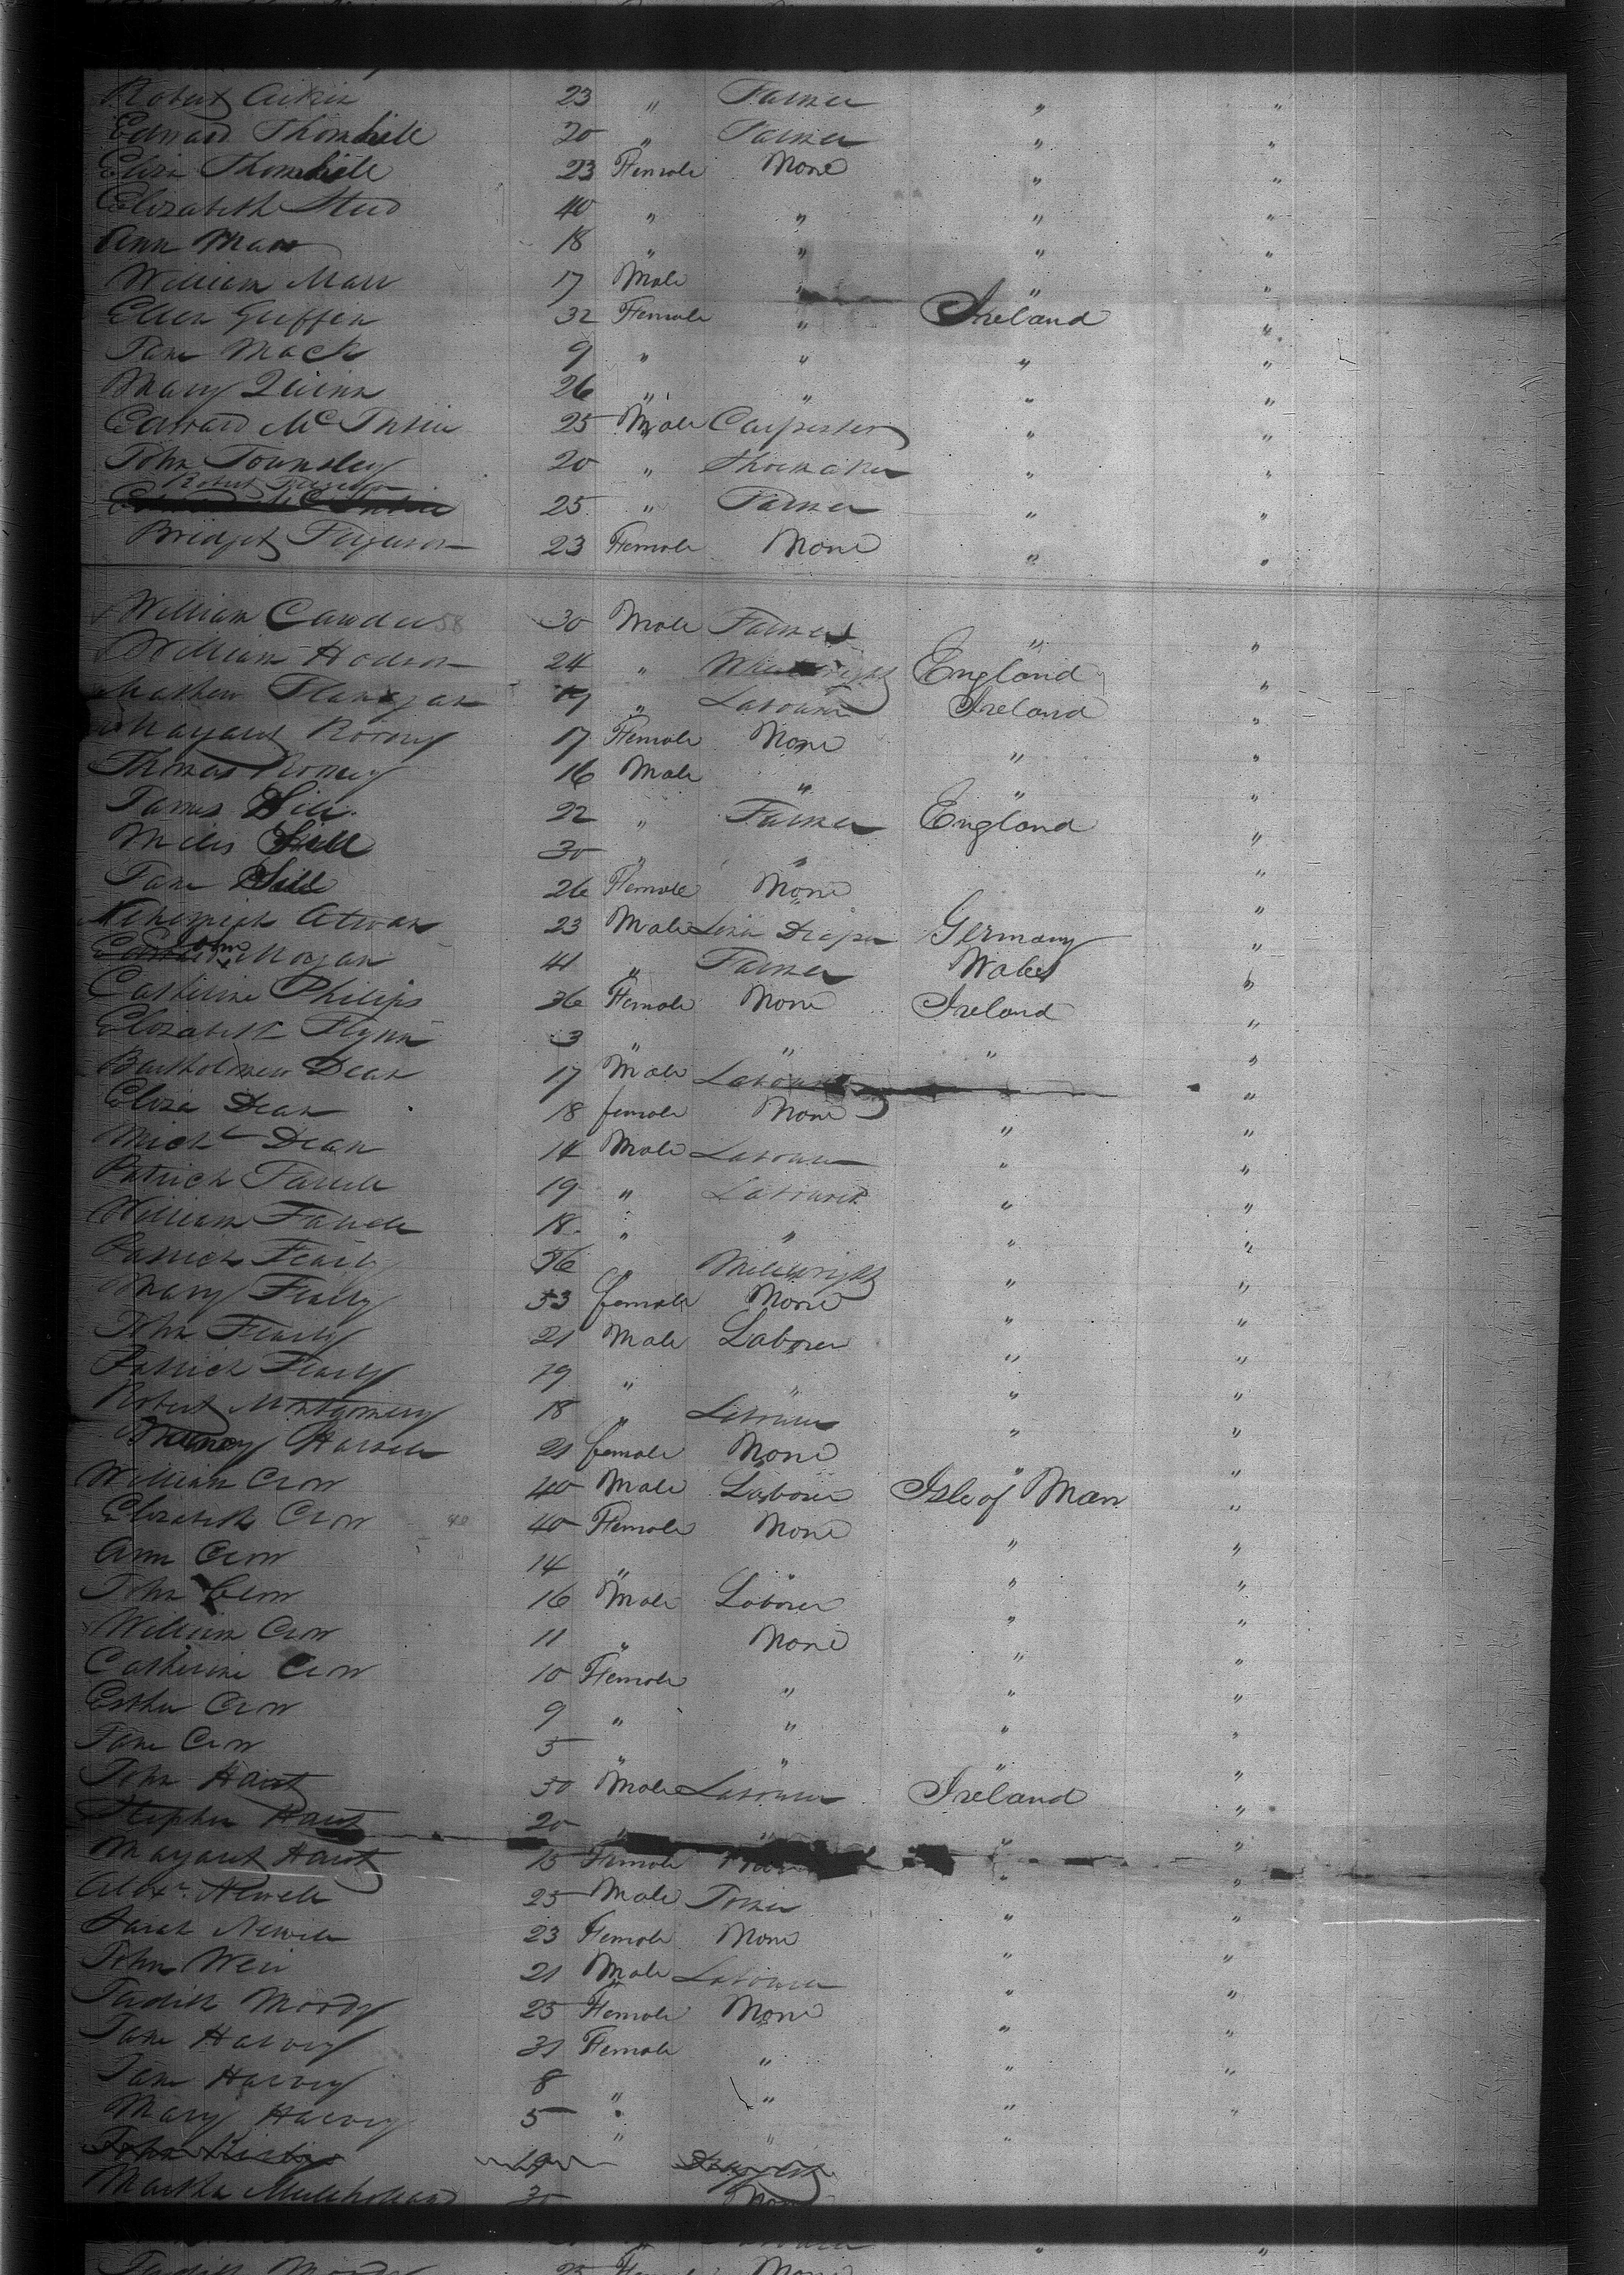 Robert Aikin 23 " Farmer " "
Edward Thornhill 20 " Farmer " "
Eliza Thornhill 23 Female None " "
Elizabeth Steed 40 " " " "
Ann Marr 18 " " " "
William Marr 17 Male " " "
Ellen Griffin 32 Female " Ireland "
Jane Mack 9 " " " "
Mary Quinn 26 " " " "
Edward McIntire 25 Male Carpenter " "
John Townsley 20 " Shoemaker " "
Robert Ferguson
25 " Farmer " "
Bridget Ferguson 23 Female None " "
William 58 30 Male Farmer " "
William Hodson 24 " England "
Mathew Flanagan 19 " Labourer Ireland "
Margaret Rooney 17 Female None " "
Thomas Rooney 16 Male " " "
James Hill 22 " Farmer England "
Miles Hill 30 " " "
Jane Hill 26 Female None "
Nehemiah 23 Male Linen Draper Germany "
John Morgan 41 " Farmer Wales "
Catherine Philips 36 Female None Ireland "
Elizabeth Flynn 3 " " " "
Bartholomew Dean 17 Male Labourer "
Eliza Dean 18 female None " "
Michl Dean 14 Male Labourer " "
Patrick Farrell 19 " Labourer " "
William Farrell 18 " " " "
Patrick 56 " Millwright " "
Mary 53 female None " "
John 21 Male Laborer " "
Patrick 19 " " " "
Robert Montgomery 18 " Labourer " "
21 female None " "
William Crow 40 Male Laborer Isle of Man "
Elizabeth Crow 40 40 Female None " "
Ann Crow 14 " " " "
John Crow 16 Male Laborer " "
William Crow 11 " None " "
Catherine Crow 10 Female " " "
Esther Crow 9 " " " "
Jane Crow 5 " " " "
John 50 Male Labourer Ireland "
Stephen 20 " " " "
Margaret 15 Female " "
Alexr. Newell 25 Male " "
Sarah Newell 23 Female None " "
John Weir 21 Male Labourer " "
Judith Moody 25 Female None " "
Jane Harvey 31 Female " " "
Jane Harvey 8 " " " "
Mary Harvey 5 " " "
John 19
Martha Mulholland 30 None
Judith Moody 25 Female None